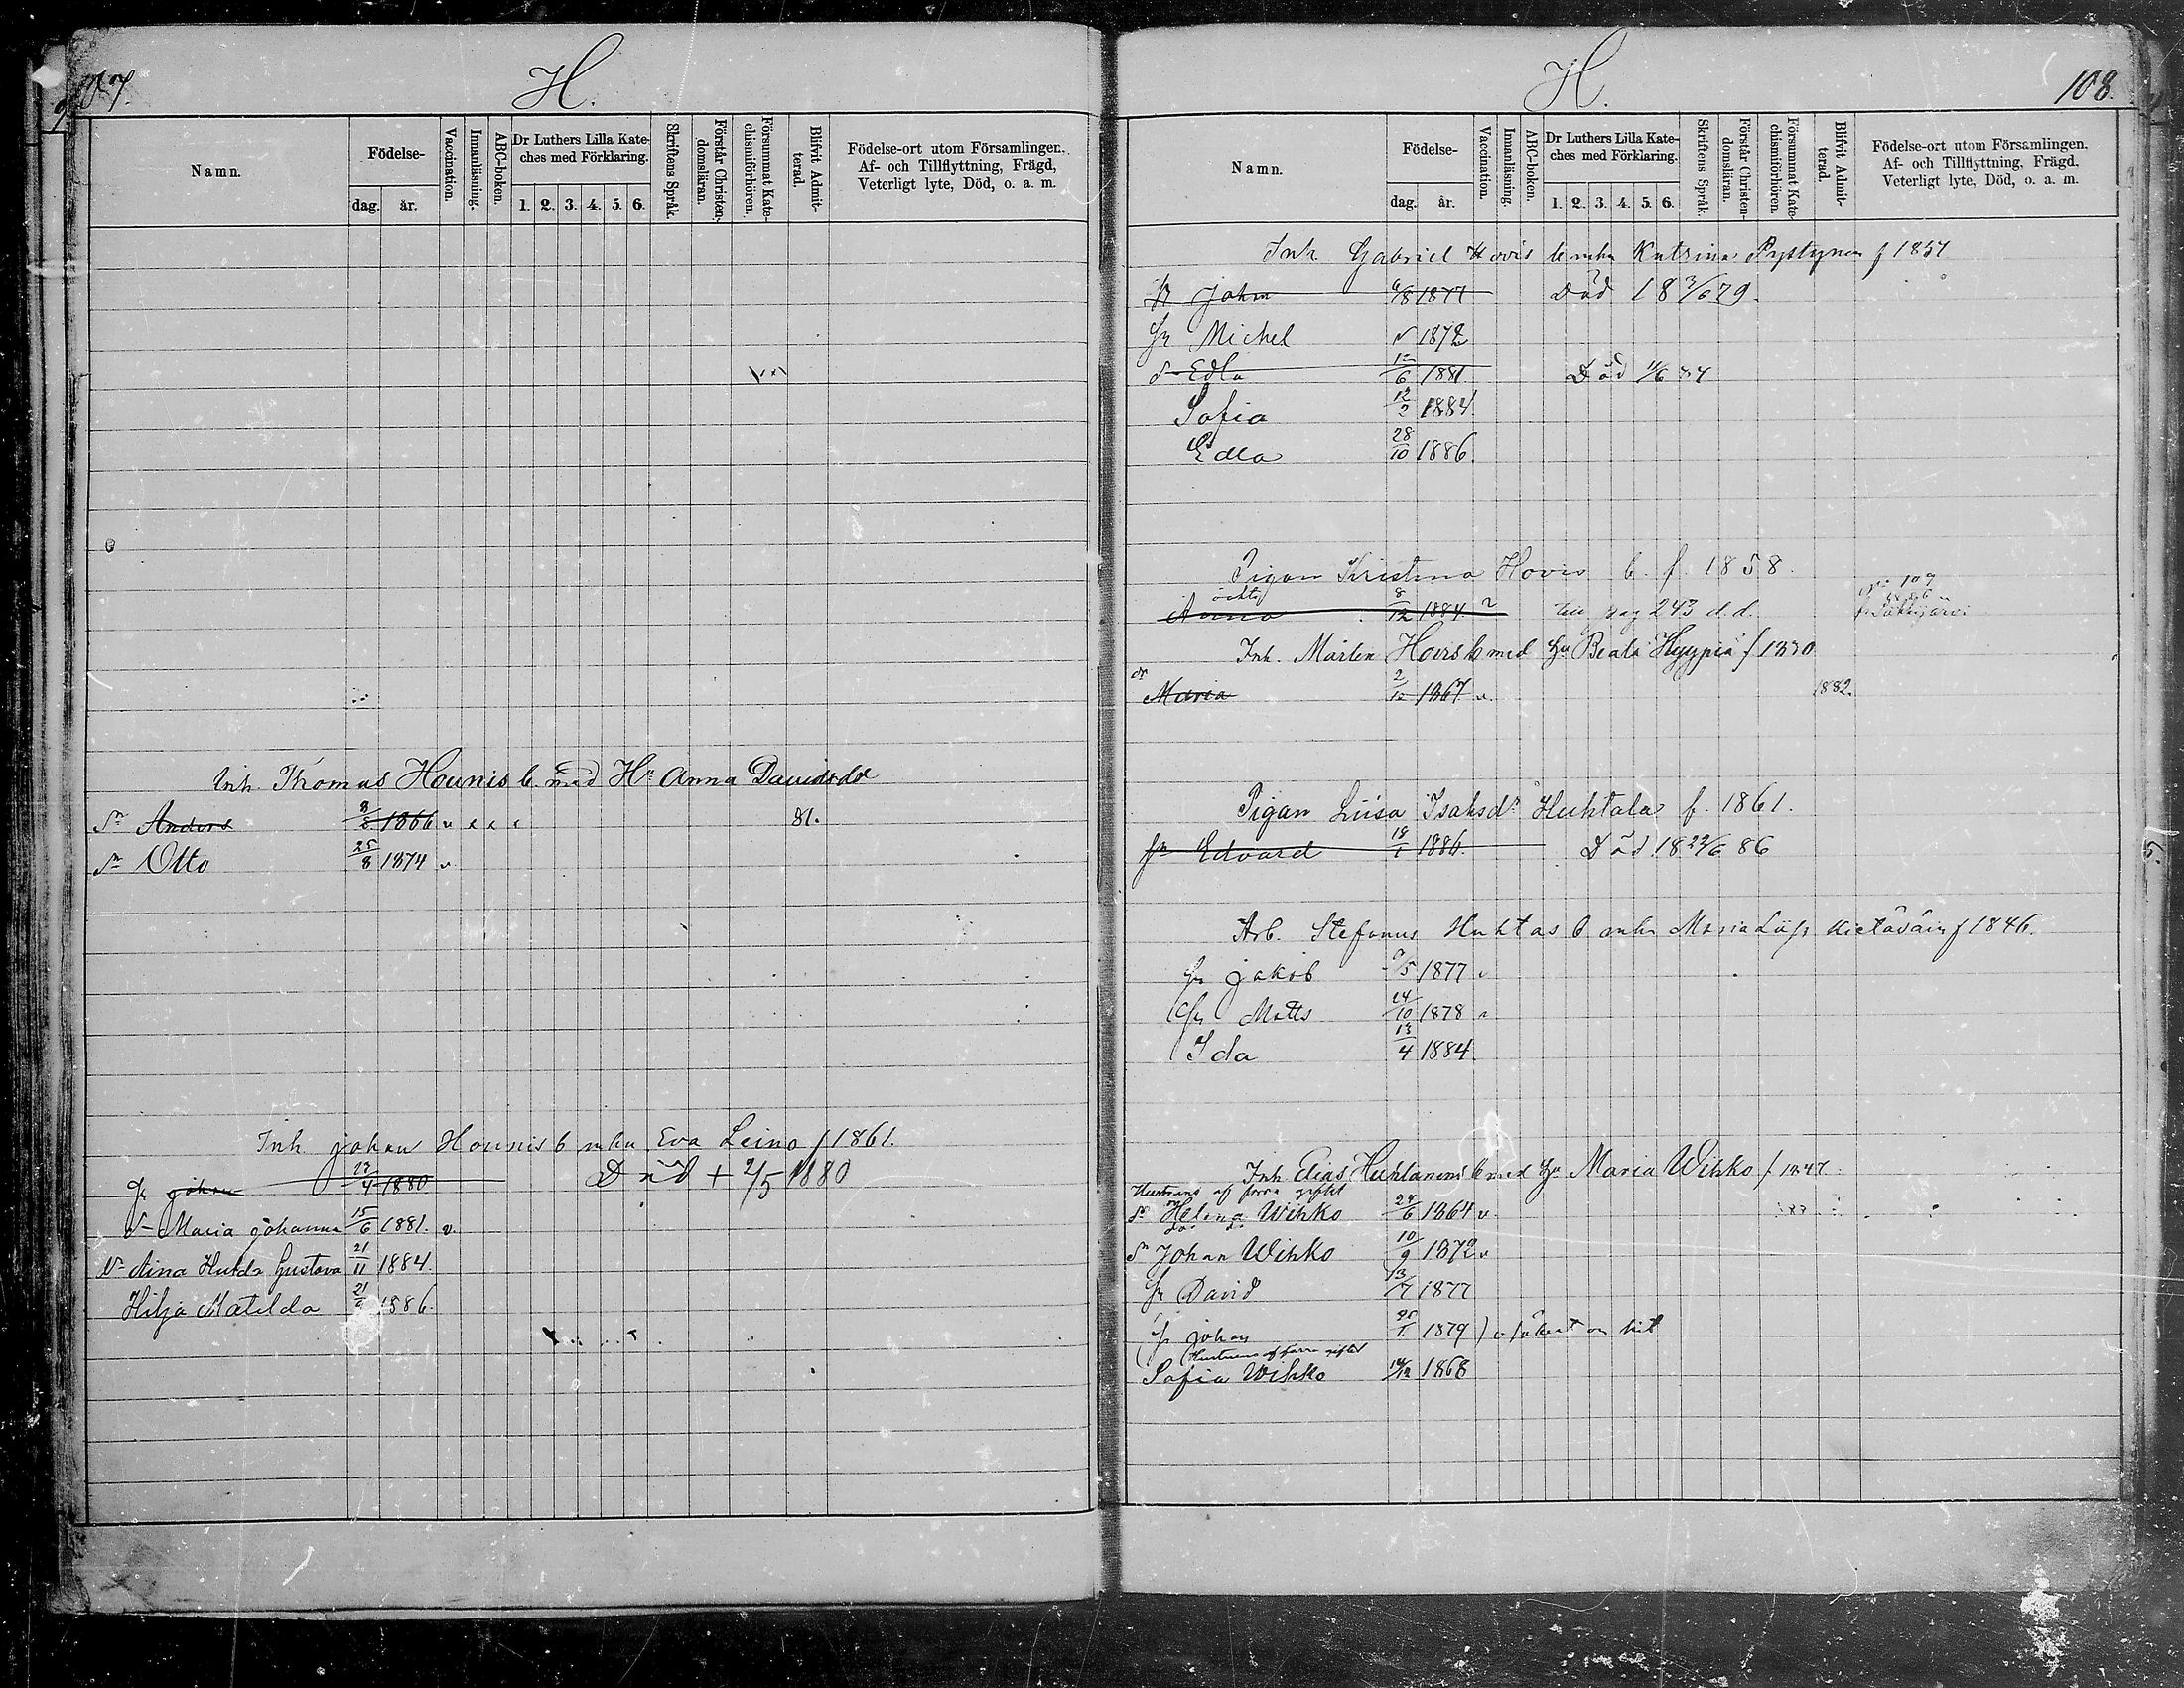 107.
H.
Namn.
Födelse-
dag.
år.
Vaccination.
Innanläsning.
ABC-boken.
Dr Luthers Lilla Kate-
ches med Förklaring.
1. 2. 3. 4. 5. 6.
Skriftens Språk.
Förstår Christen-
domsläran.
Försummat Kate-
chismiförhören.
Blifvit Admit-
terad.
Födelse-ort utom Församlingen.
Af- och Tillflyttning, Frägd,
Veterligt lyte, Död, o. a. m.
Inh. Thomas Hounis b. med Hu Anna Davidsdr
Sn Anders 8/8 1866 v x x x 81.
Sn Otto 25/8 1874 v
Inh Johan Hounis b mhu Eva Leino f 1861.
Johan 13/4 1880 Död + 2/5 1880
Dr Maria Johanna 15/6 1881. v
Dr Aina Hulda Gustava 21/11 1884.
Hilja Matilda 1886.
H.
108.
Namn.
Födelse-
dag.
år.
Vaccination.
Innanläsning.
ABC-boken.
Dr Luthers Lilla Kate-
ches med Förklaring.
1. 2. 3. 4. 5. 6.
Skriftens Språk.
Förstår Christen-
domsläran.
Försummat Kate-
chismiförhören.
Blifvit Admit-
terad.
Födelse-ort utom Församlingen.
Af- och Tillflyttning, Frägd,
Veterligt lyte, Död, o. a. m.
Inh Gabriel Hovis b mhu Katrina Pystynen f 1857
Johan 6/8 1877 Död 18 3/6 79.
Michel 1872
Edla 6 1881 Död
Sofia 12/2 1884.
Edla 28/10 1886.
Pigan Kristina Hovis b. f. 1858.
Anna 8/12 1884. till pag 243 d.d.
Inh. Mårten Hovis b med Hu Beata Hyypiä f 1830
Maria 2/12 1867 v. 1882.
Pigan Liisa Isaksdr Huhtala f. 1861.
Edvard 18/1 1886. Död 18 22/6 86
Arb. Stefanus Huhtas b mhu Maria f 1846.
Jakob 9/5 1877 v
Matts 14/10 1878
Ida 13/4 1884.
Inh Elias Huhtanens b med Hu Maria Wihko f 1847.
Hustruns af förra giftet
Dr Helena Wihko 24/6 1864 v.
Sn Johan Wihko 10/9 1872 v
David 13/7 1877
Johan 1879
Hustruns af förra giftet
Sofia Wihko 1868